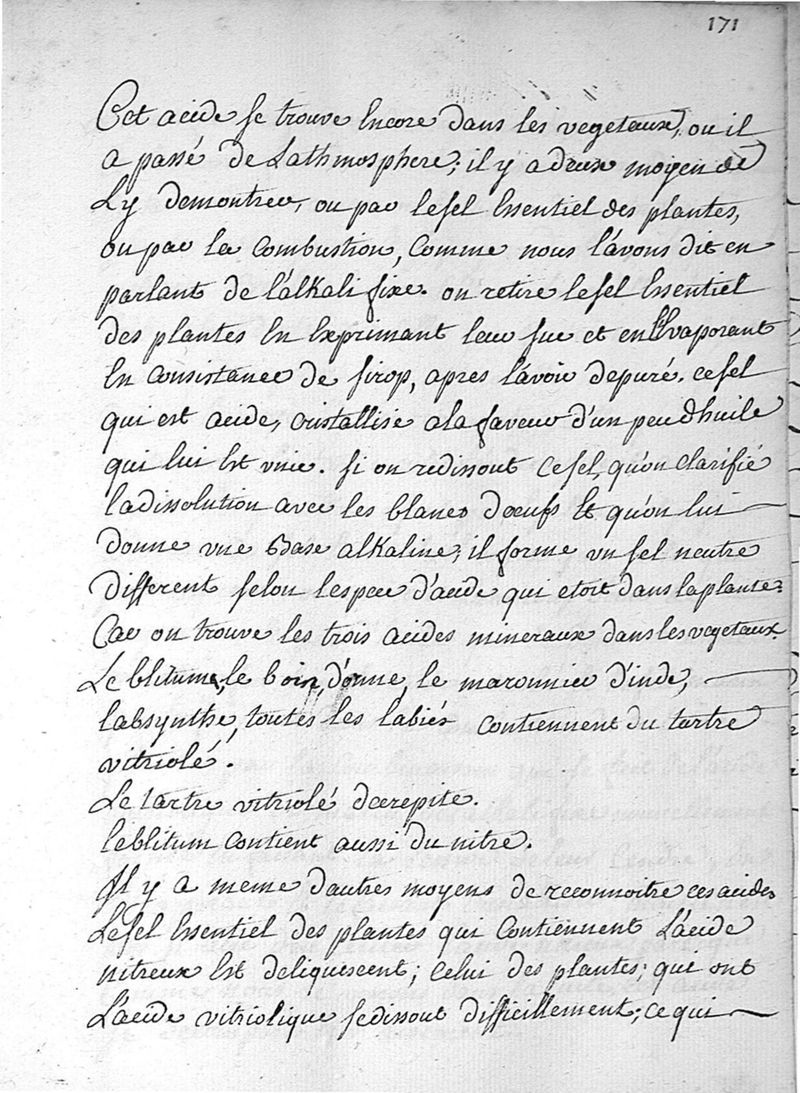 171
Cet acide se trouve Encore dans les vegetaux, ou il
a passé de Lathmosphere; il y a deux moyen de
L'y demontrer, ou par lesel Essentiel des plantes,
ou par la Combustion, Comme nous l'avons dit en
parlant de l'alkali fixe. on retire lesel Essentiel
des plantes En Exprimant leur suc et en l'Evaporant
En Consistance de sirop, apres l'avoir depuré. cesel
qui est acide, cristallise a la faveur d'un peu d'huile
qui lui Est unie. si on redissout cesel, qu'on clarifie
la dissolution avec les blancs d'oeufs Et qu'on lui
donne une Base alkaline, il forme un sel neutre
different selon l'espece d'acide qui etoit dans la plante.
Car on trouve les trois acides mineraux dans les vegetaux.
Le blitume, le d'onne, le maronnier d'inde,
l'absynthe, toutes les labiés contiennent du tartre
vitriolé.
Le tartre vitriolé decrepite.
le blitum Contient aussi du nitre.
Il y a meme d'autres moyens de reconnoitre ces acides
Lesel Essentiel des plantes qui Contiennent L'acide
nitreux Est deliquescent; celui des plantes, qui ont
L'acide vitriolique se dissout difficillement; ce qui